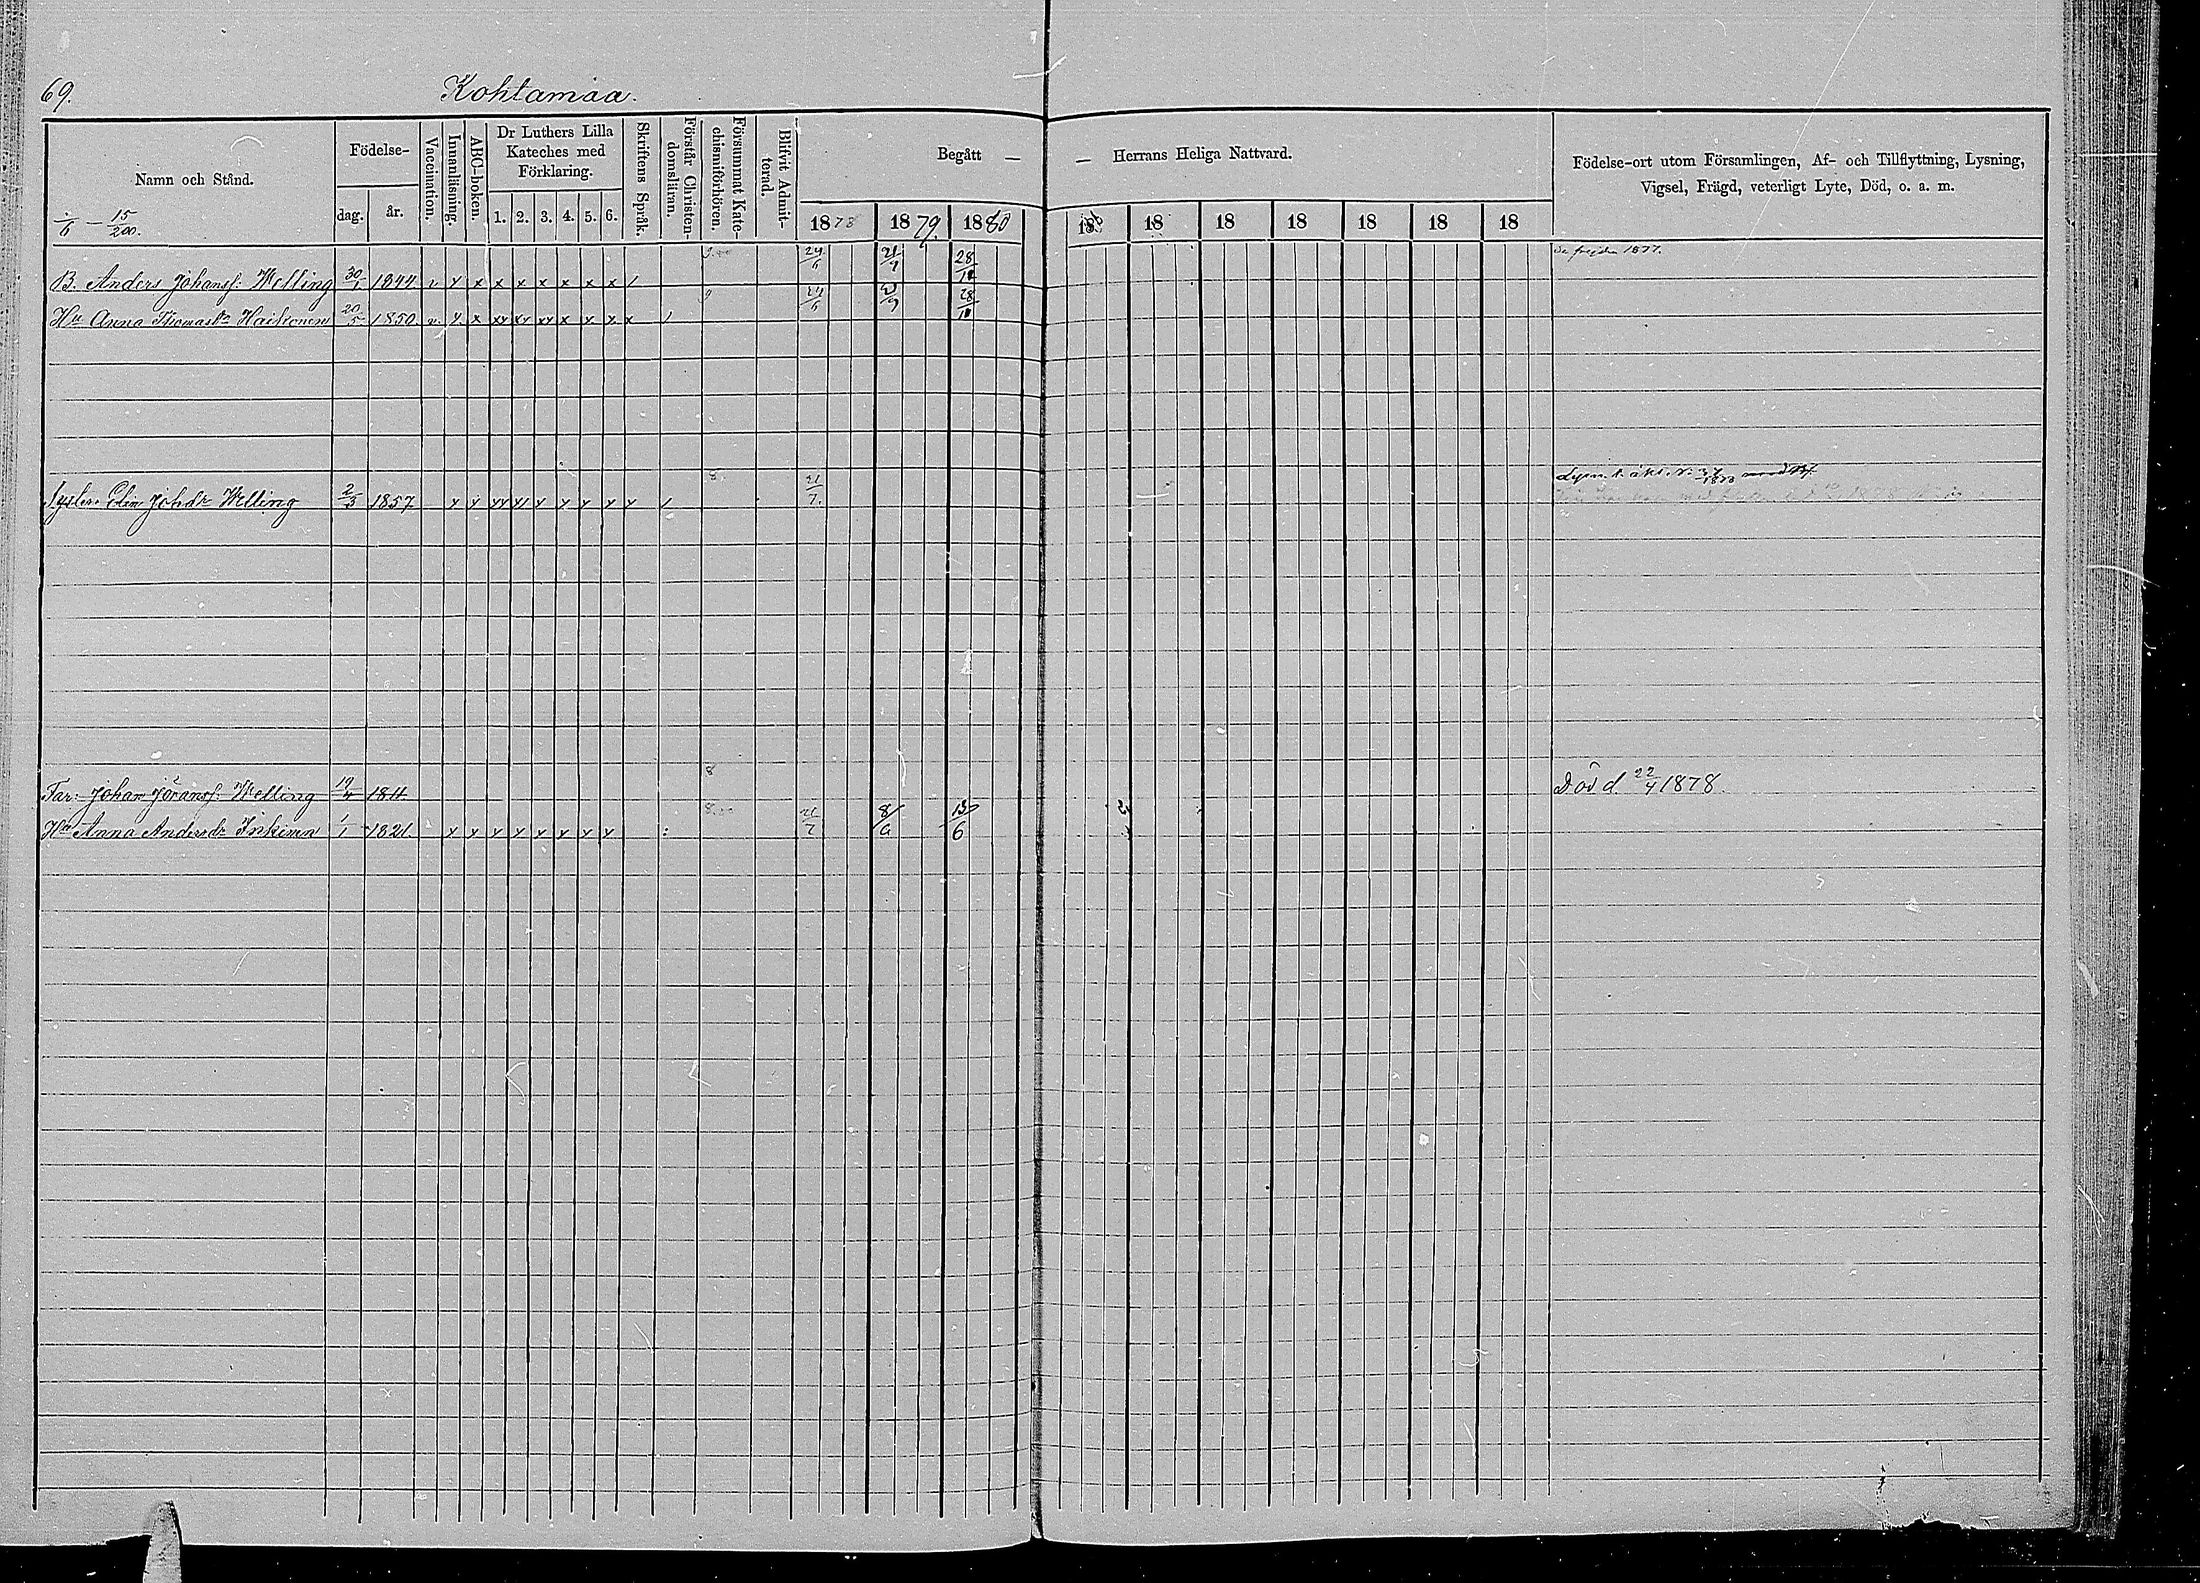 69. Kohtamaa.
Namn och Stånd. Födelse- dag. år. Vaccination. Innanläsning. ABC-boken. Dr Luthers Lilla Kateches med Förklaring. 1. 2. 3. 4. 5. 6. Skriftens Språk. Förstår Christen-domsläran. Försummat Kate-chismiförhören. Blifvit Admit-terad. Begått — — Herrans Heliga Nattvard. Födelse-ort utom Församlingen, Af- och Tillflyttning, Lysning, Vigsel, Frägd, veterligt Lyte, Död, o. a. m.
15/200.
1878 1879. 1880 18 18 18 18 18 18 18
B. Anders Johanss: Welling 30/1 1844 v y x x x x x x x / 24/6 21/9 28/11 1877.
Hu Anna Thomasdr Haikonen 20/5 1850 v y x xy xy xy x y x x / 24/6 21/9 28/11
Syster Elin Johdr Welling 2/3 1857 y y xy y y y y y y / 8. 21/7.
Far: Johan Jöranss: Welling 19/4 1811 8 Död 22/4 1878.
Hu Anna Andersdr Inkinen 1/1 1821 y y y y y y y y 21/7 8/6 13/6